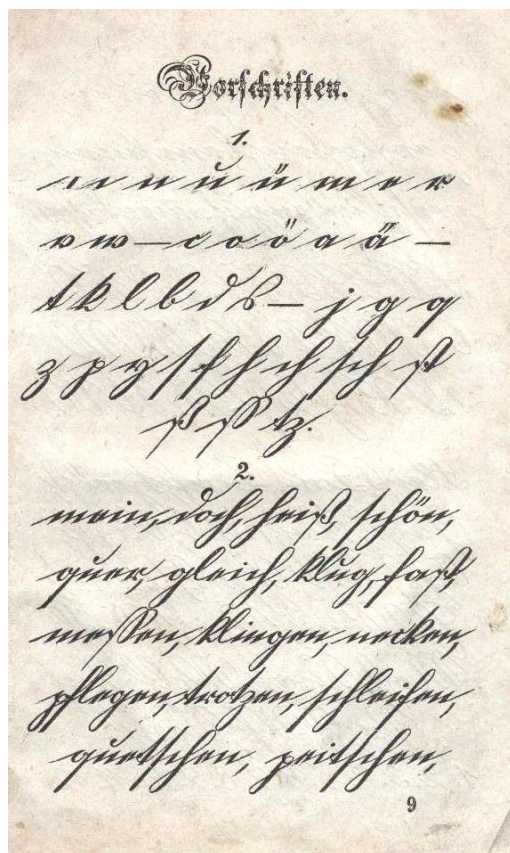 Vorschriften.
1.
i n u ü m e r
v w — c o ö a ä —
t k l b d s — j g q
z p y ſ f h ch ſch ſt
ß ſſ tz.
2.
mein, doch, heiß, ſchön,
quer, gleich, klug, faſt,
meſſen, klingen, necken,
pflegen, trotzen, ſchleifen,
quetſchen, peitſchen,
9